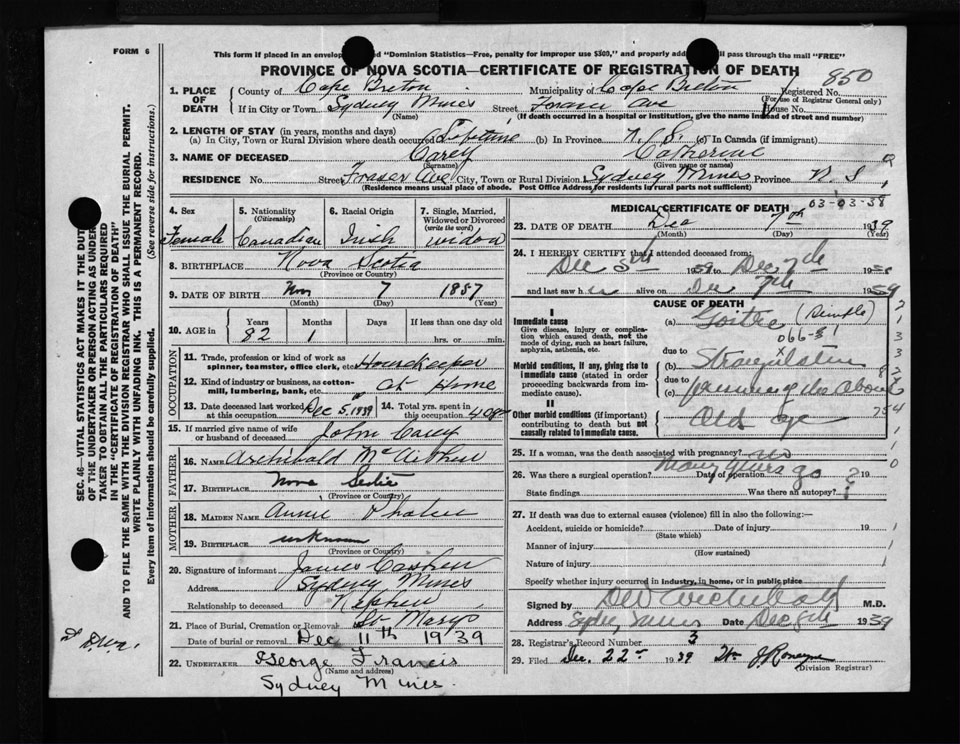 FORM 6
This form if placed in an envelop ed "Dominion Statistics—Free, penalty for improper use $300," and properly add ll pass through the mail "FREE"
PROVINCE OF NOVA SCOTIA—CERTIFICATE OF REGISTRATION OF DEATH
850
1. PLACE OF DEATH
County of Cape Breton Municipality of Cape Breton Registered No.
(For use of Registrar General only)
If in City or Town Sydney Mines Street Fraser Ave House No.
(Name) (If death occurred in a hospital or institution, give the name instead of street and number)
2. LENGTH OF STAY (in years, months and days)
(a) In City, Town or Rural Division where death occurred Lifetime (b) In Province N. S. (c) In Canada (if immigrant)
3. NAME OF DECEASED Carey Catherine
(Surname) (Given name or names)
RESIDENCE No. Street Fraser Ave City, Town or Rural Division Sydney Mines Province N. S.
(Residence means usual place of abode. Post Office Address for residents in rural parts not sufficient)
4. Sex 5. Nationality (Citizenship) 6. Racial Origin 7. Single, Married, Widowed or Divorced (write the word)
Female Canadian Irish widow
8. BIRTHPLACE Nova Scotia
(Province or Country)
9. DATE OF BIRTH Nov 7 1857
(Month) (Day) (Year)
10. AGE in Years Months Days If less than one day
82 1 hrs. or min.
OCCUPATION
11. Trade, profession or kind of work as spinner, teamster, office clerk, etc. Housekeeper
12. Kind of industry or business, as cotton-mill, lumbering, bank, etc. At Home
13. Date deceased last worked at this occupation Dec 5, 1939 14. Total yrs. spent in this occupation
15. If married give name of wife or husband of deceased John Carey
FATHER
16. NAME Archibald McArthur
17. BIRTHPLACE Nova Scotia
(Province or Country)
MOTHER
18. MAIDEN NAME Annie Phalen
19. BIRTHPLACE unknown
(Province or Country)
20. Signature of informant James
Address Sydney Mines
Relationship to deceased Nephew
21. Place of Burial, Cremation or Removal St Marys
Date of burial or removal Dec 11th 1939
22. UNDERTAKER George Francis
(Name and address)
Sydney Mines.
MEDICAL CERTIFICATE OF DEATH
03-03-38
23. DATE OF DEATH Dec 7th 1939
(Month) (Day)
24. I HEREBY CERTIFY that I attended deceased from:
Dec 5th 1939 to Dec 7th 1939
and last saw her alive on Dec 7th 1939
CAUSE OF DEATH
I
Immediate cause
Give disease, injury or complication which caused death, not the mode of dying, such as heart failure, asphyxia, asthenia, etc.
(a) Goitre (Simple)
066-
due to
Morbid conditions, if any, giving rise to immediate cause (stated in order proceeding backwards from immediate cause).
(b)
due to
(c) pressure of the above
II
Other morbid conditions (if important) contributing to death but not causally related to immediate cause.
Old age
25. If a woman, was the death associated with pregnancy? no
26. Was there a surgical operation? Date of operation 19
many years ago
State findings Was there an autopsy?
27. If death was due to external causes (violence) fill in also the following:—
Accident, suicide or homicide? Date of injury 19
(State which)
Manner of injury
(How sustained)
Nature of injury
Specify whether injury occurred in industry, in home, or in public place
Signed by Archibald M.D.
Address Sydney Mines Date Dec 8th 1939
28. Registrar's Record Number 3
29. Filed Dec. 22 1939
(Division Registrar)
SEC. 46—VITAL STATISTICS ACT MAKES IT THE DUT
OF THE UNDERTAKER OR PERSON ACTING AS UNDER
TAKER TO OBTAIN ALL THE PARTICULARS REQUIRED
IN THE "CERTIFICATE OF REGISTRATION OF DEATH"
AND TO FILE THE SAME WITH THE DIVISION REGISTRAR WHO SHALL ISSUE THE BURIAL PERMIT.
WRITE PLAINLY WITH UNFADING INK. THIS IS A PERMANENT RECORD.
Every item of information should be carefully supplied.
(See reverse side for instructions.)